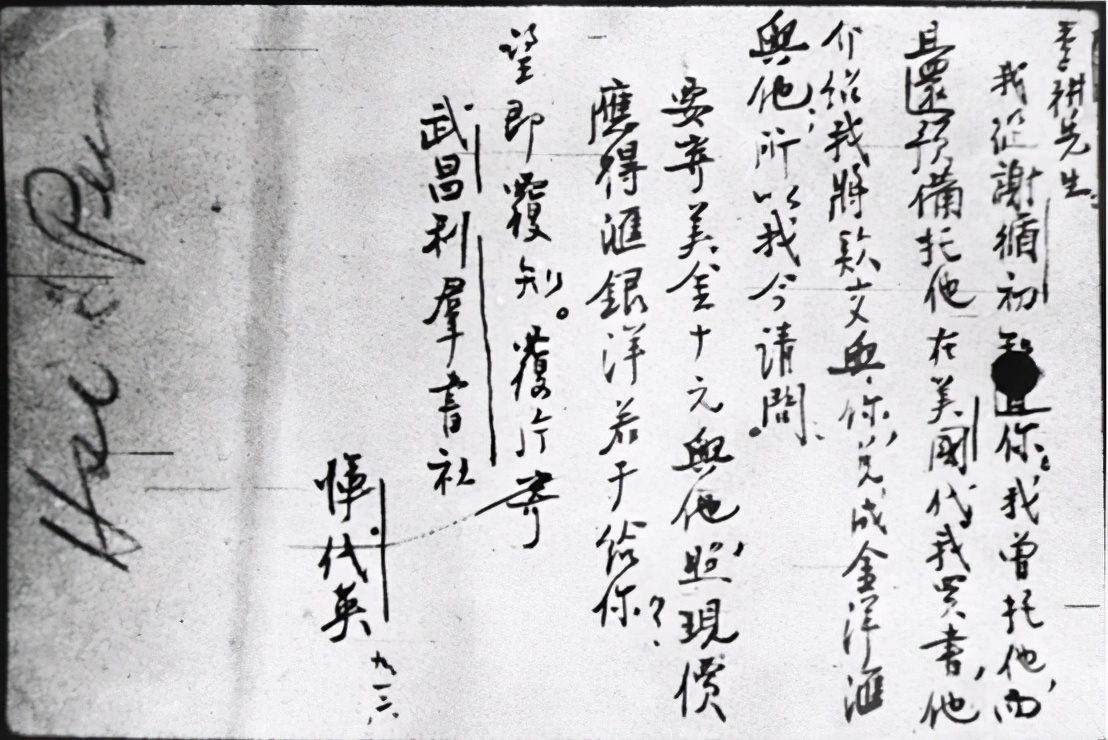 季耕先生:
我從謝循初知道你,我曾托他,而
且還預備托他在美國代我買書,他
介紹我將款交與你,兌成金洋匯
與他;所以我今請問。
要寄美金十元與他,照現價
應得匯銀洋若干給你?
望即覆知。覆片寄
武昌利羣書社
惲代英
九、一六